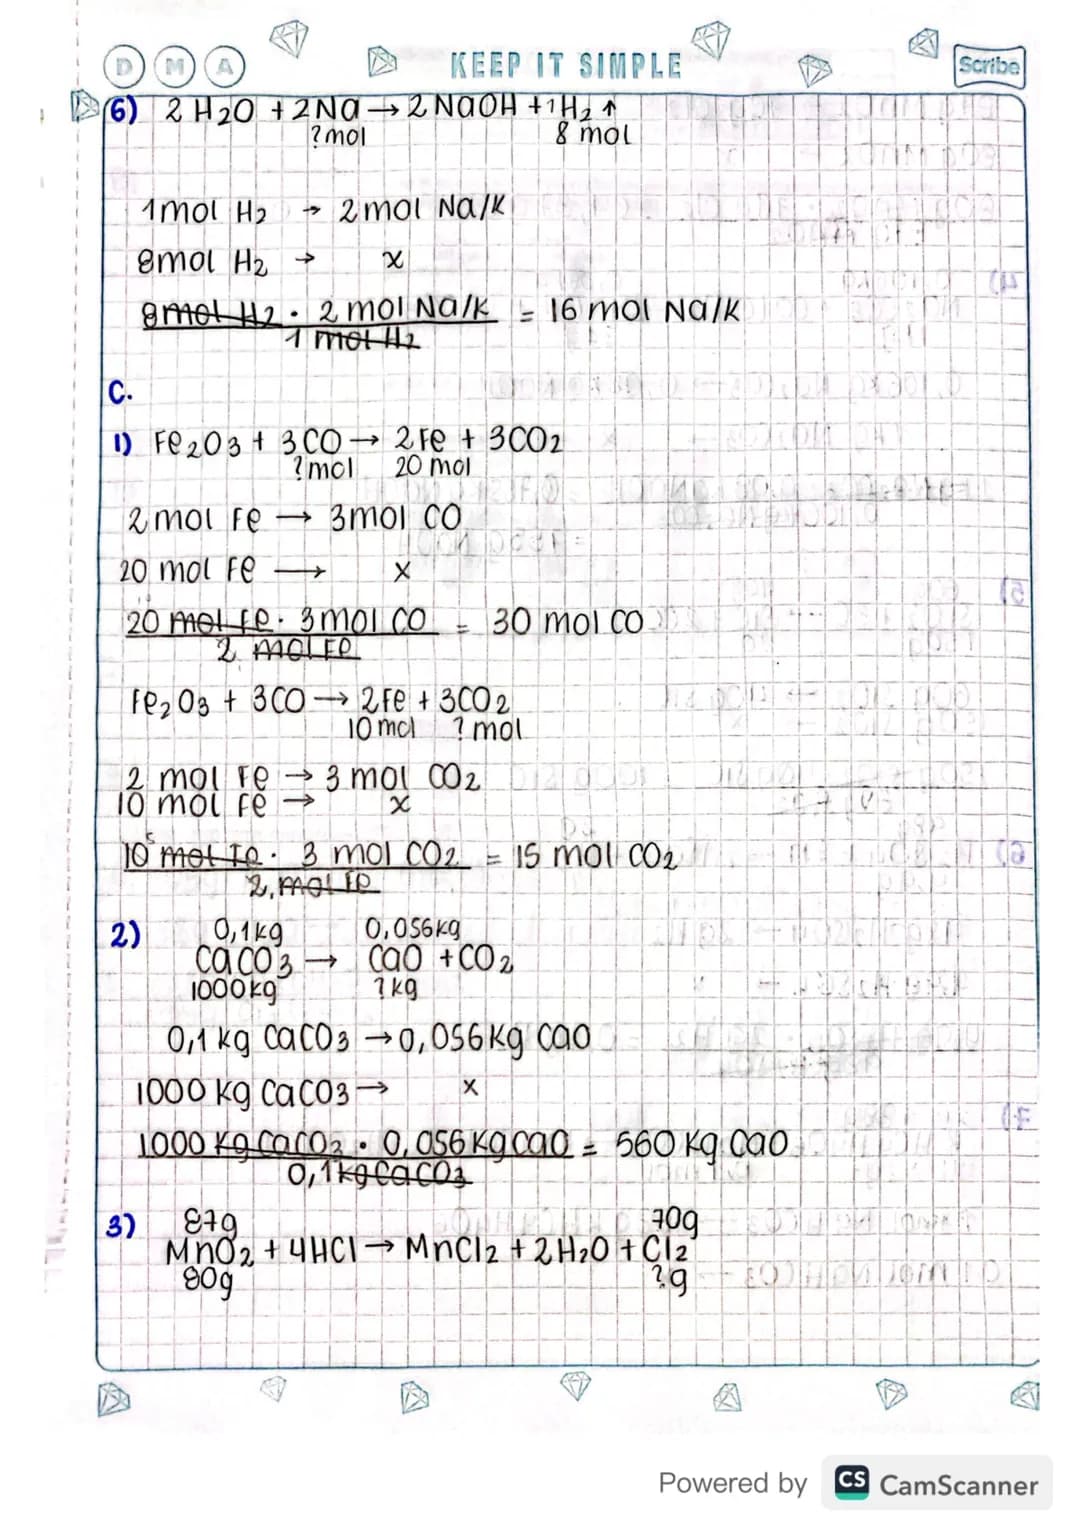 D M A KEEP IT SIMPLE Scribe
6) 2 H2O + 2Na → 2 NaOH + 1H2 ↑
?mol 8 mol
1mol H2 → 2mol Na/K
8mol H2 → x
8mol H2 · 2 mol Na/K = 16 mol Na/K
1 mol H2
C.
1) Fe2O3 + 3CO → 2Fe + 3CO2
?mol 20 mol
2 mol Fe → 3mol CO
20 mol Fe → x
20 mol Fe · 3mol CO = 30 mol CO
2 mol Fe
Fe2O3 + 3CO → 2Fe + 3CO2
10 mol ? mol
2 mol Fe → 3 mol CO2
10 mol Fe → x
10 5 mol Fe · 3 mol CO2 = 15 mol CO2
2 mol Fe
2) 0,1kg 0,056kg
CaCO3 → CaO + CO2
1000kg ?kg
0,1 kg CaCO3 → 0,056 kg CaO
1000 kg CaCO3 → x
1000 kg CaCO3 · 0,056 kg CaO = 560 kg CaO
0,1 kg CaCO3
3) 87g 70g
MnO2 + 4HCl → MnCl2 + 2H2O + Cl2
80g ?g
Powered by CS CamScanner